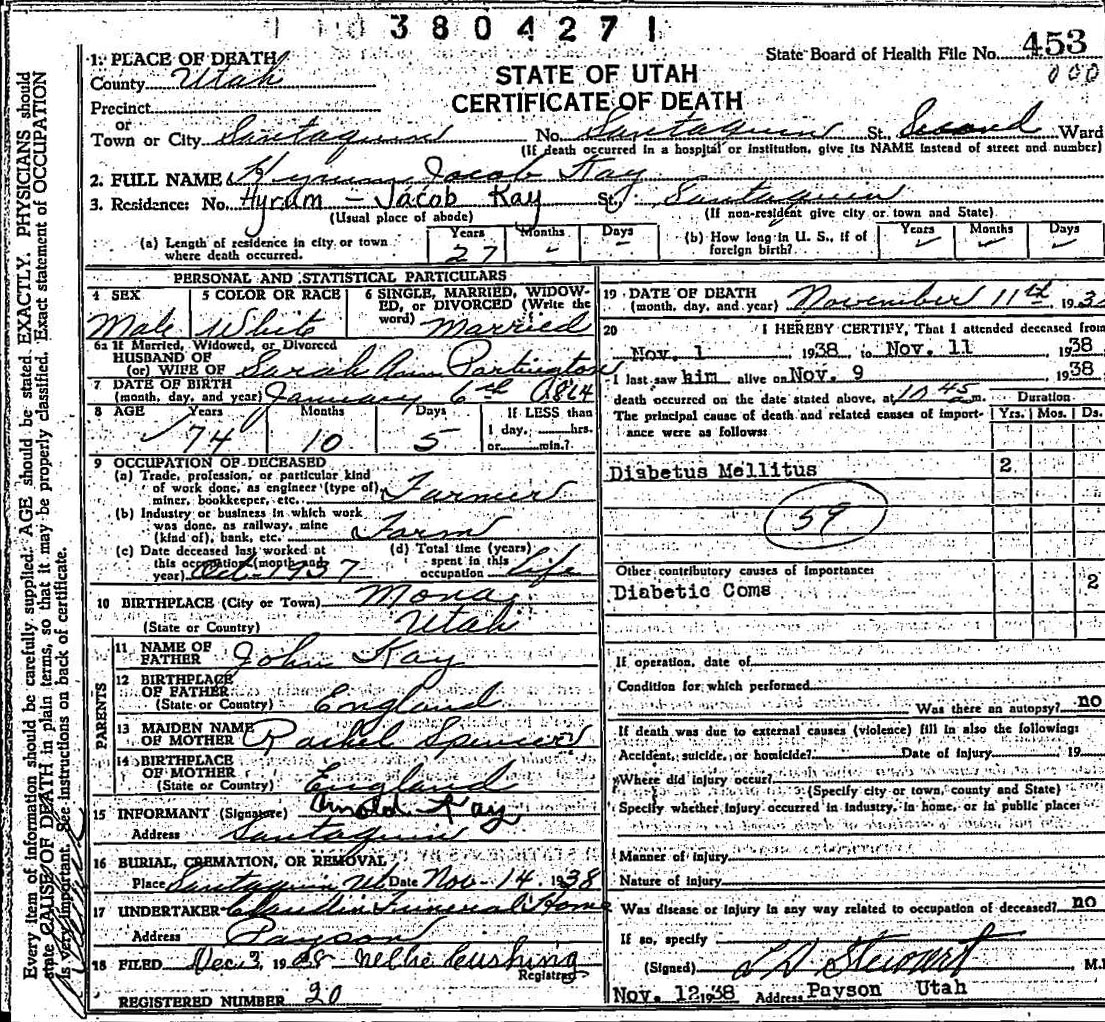 3804271
State Board of Health File No. 453
000
1. PLACE OF DEATH
County Utah
STATE OF UTAH
CERTIFICATE OF DEATH
Precinct
or
Town or City Santaquin No. Santaquin St. Second Ward
(If death occurred in a hospital or institution, give its NAME instead of street and number)
2. FULL NAME Hyrum Jacob Kay
3. Residence: No. Hyrum - Jacob Kay St. Santaquin
(Usual place of abode) (If non-resident give city or town and State)
(a) Length of residence in city or town where death occurred. Years 27 Months - Days -
(b) How long in U. S., if of foreign birth? Years Months Days
PERSONAL AND STATISTICAL PARTICULARS
4 SEX Male
5 COLOR OR RACE White
6 SINGLE, MARRIED, WIDOWED, OR DIVORCED (Write the word) Married
6a If Married, Widowed, or Divorced
HUSBAND OF
(or) WIFE OF Sarah Ann Partington
7 DATE OF BIRTH
(month, day, and year) January 6th 1864
8 AGE Years 74 Months 10 Days 5
If LESS than
1 day, hrs.
or min.?
9 OCCUPATION OF DECEASED
(a) Trade, profession, or particular kind
of work done, as engineer (type of),
miner, bookkeeper, etc. Farmer
(b) Industry or business in which work
was done, as railway, mine
(kind of), bank, etc. Farm
(c) Date deceased last worked at
this occupation (month and
year) Oct-1937
(d) Total time (years)
spent in this
occupation Life
10 BIRTHPLACE (City or Town) Mona
(State or Country) Utah
PARENTS
11 NAME OF
FATHER John Kay
12 BIRTHPLACE
OF FATHER
(State or Country) England
13 MAIDEN NAME
OF MOTHER Rachel Spencer
14 BIRTHPLACE
OF MOTHER
(State or Country) England
15 INFORMANT (Signature) Arnold Kay
Address Santaquin
16 BURIAL, CREMATION, OR REMOVAL
Place Santaquin Ut Date Nov-14, 1938
17 UNDERTAKER Funeral Home
Address Payson
18 FILED Dec. 1938 Nellie Cushing
Registrar
REGISTERED NUMBER 20
19 DATE OF DEATH
(month, day, and year) November 11th 193
20 I HEREBY CERTIFY, That I attended deceased from
Nov. 1 1938 to Nov. 11 1938
I last saw him alive on Nov. 9 1938
death occurred on the date stated above, at 10 45 a.m.
The principal cause of death and related causes of importance were as follows:
Duration
Yrs. Mos. Ds.
Diabetus Mellitus 2
59
Other contributory causes of importance:
Diabetic Coms 2
If operation, date of
Condition for which performed
Was there an autopsy? no
If death was due to external causes (violence) fill in also the following:
Accident, suicide, or homicide? Date of injury 19
Where did injury occur?
(Specify city or town, county and State)
Specify whether injury occurred in industry, in home, or in public place:
Manner of injury
Nature of injury
Was disease or injury in any way related to occupation of deceased? no
If so, specify
(Signed) L D Stewart M.
Nov. 12 1938 Address Payson Utah
Every item of information should be carefully supplied. AGE should be stated EXACTLY. PHYSICIANS should
state CAUSE OF DEATH in plain terms, so that it may be properly classified. Exact statement of OCCUPATION
is very important. See instructions on back of certificate.